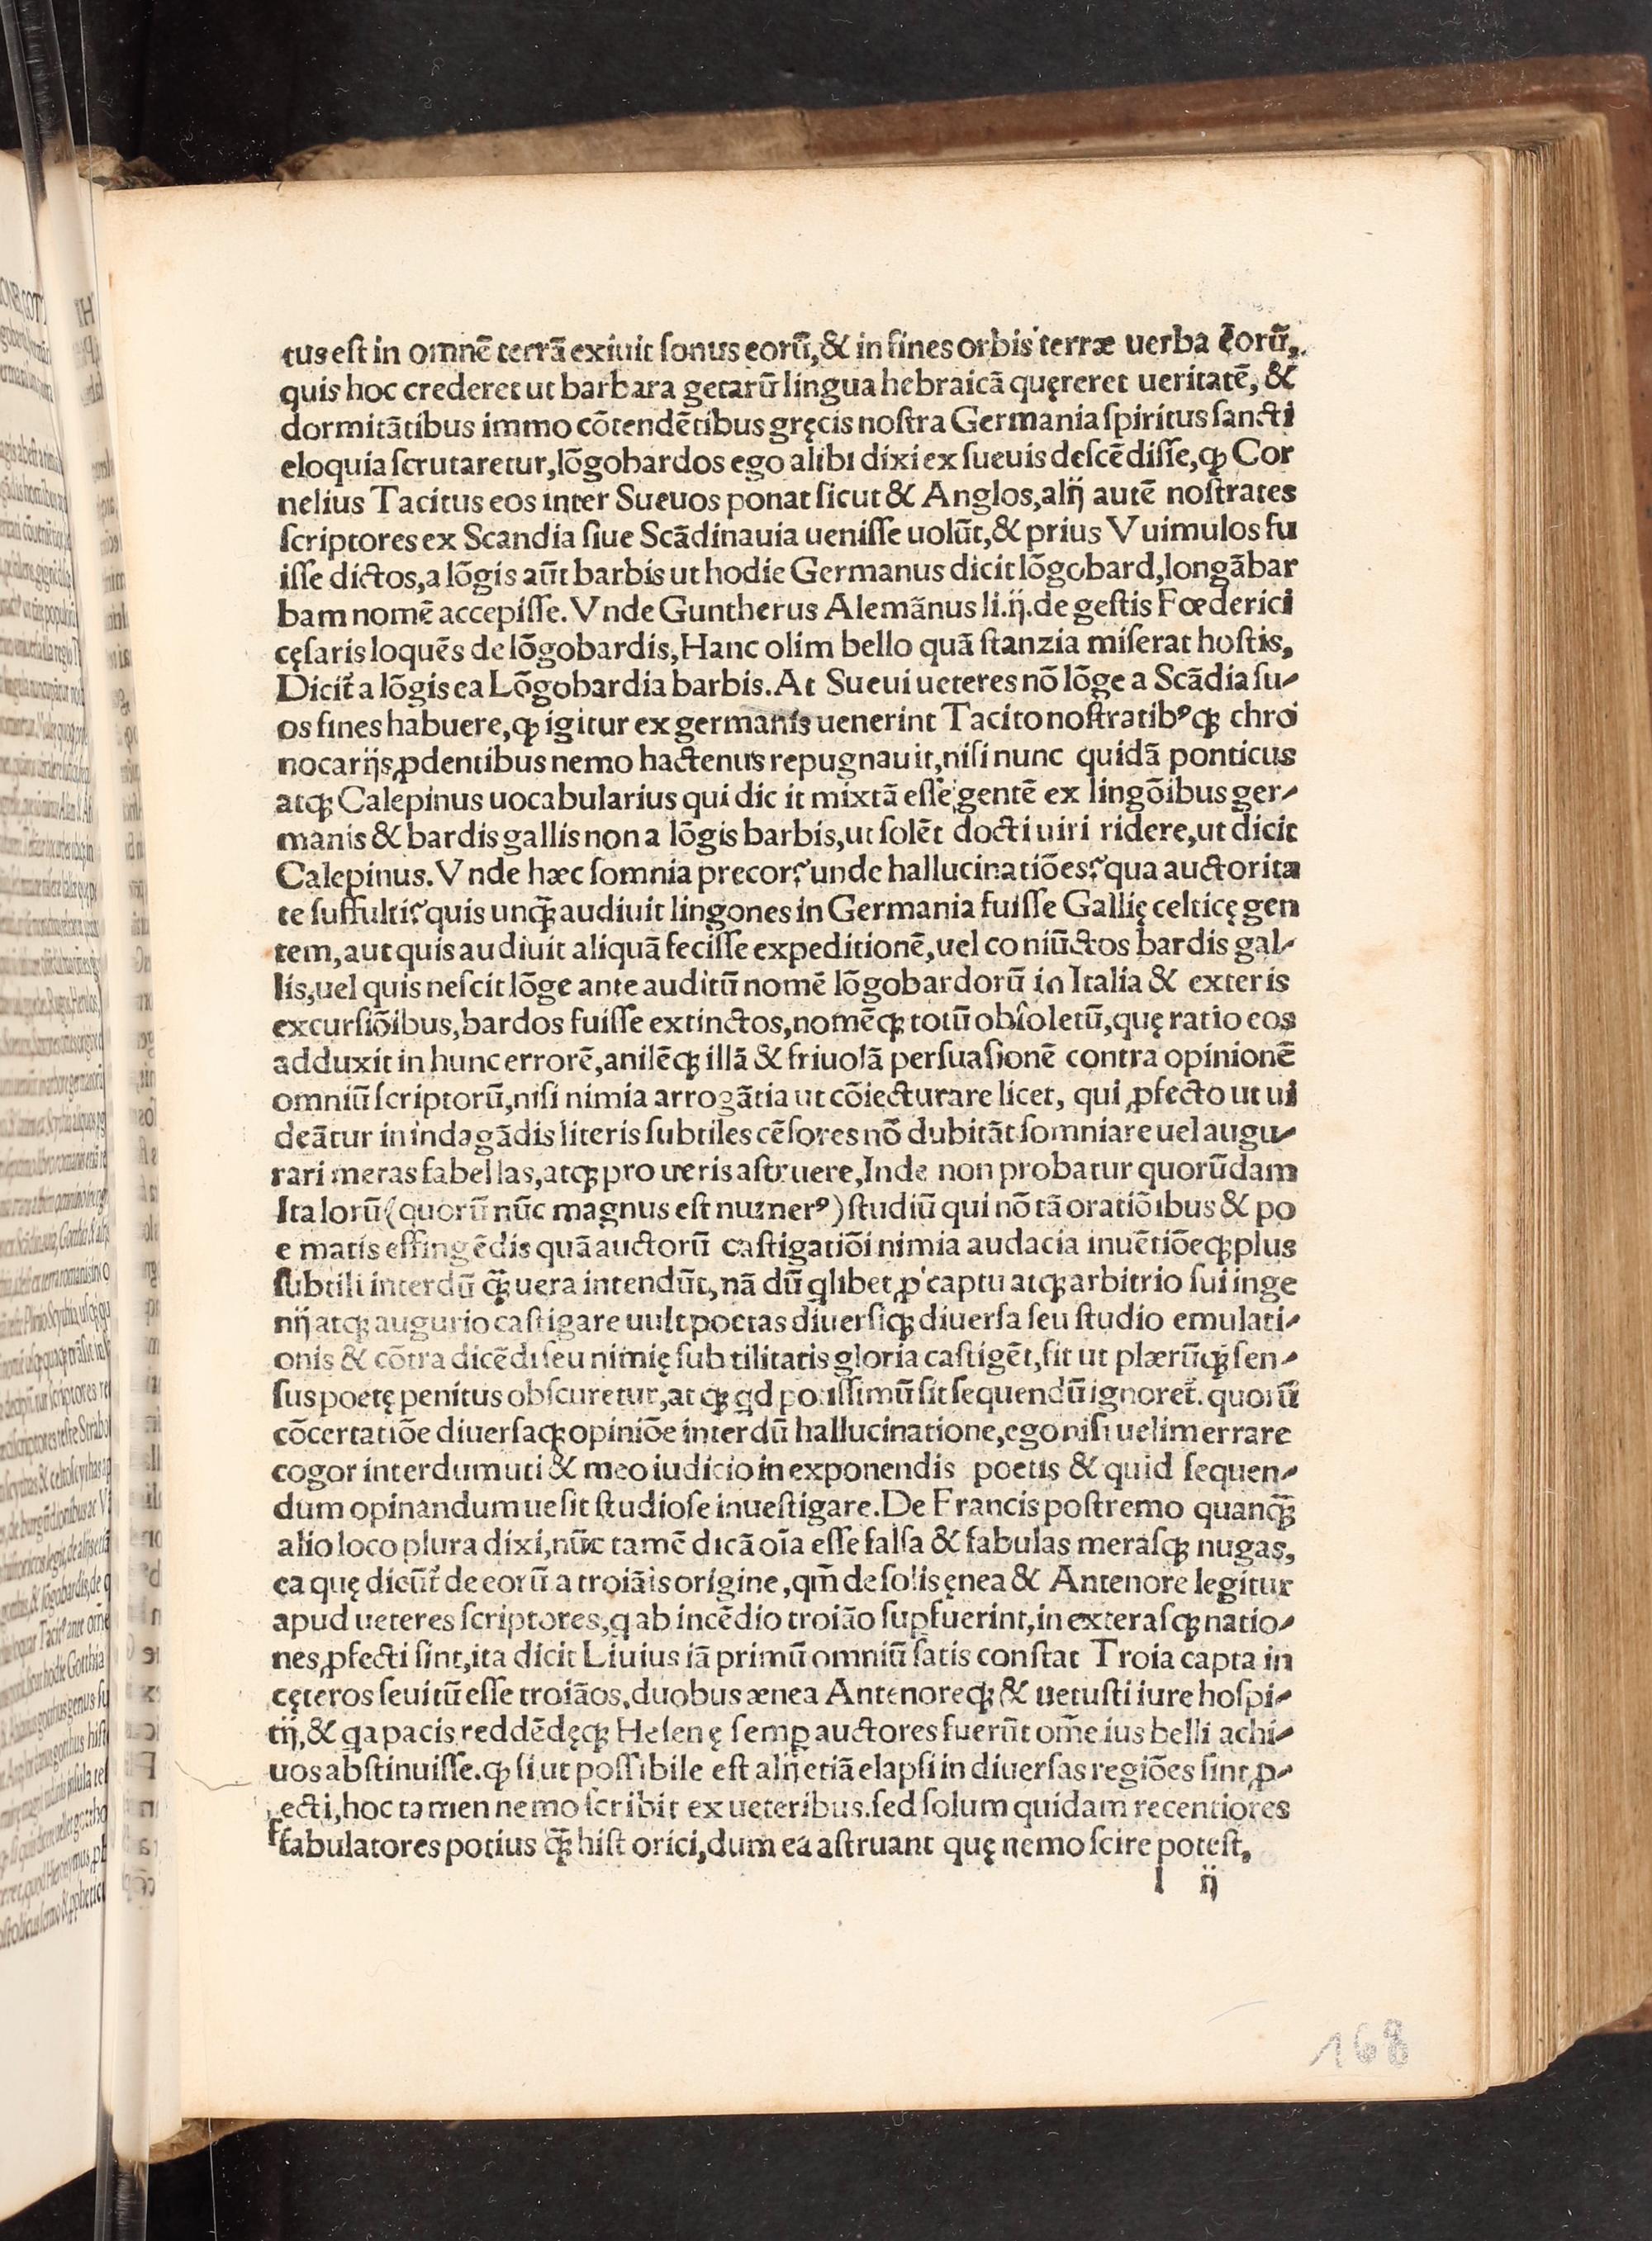 tus est in omnē terrā exiuit sonus eorū, & in fines orbis terræ uerba eorū,
quis hoc crederet ut barbara getarū lingua hebraicā quęreret ueritatē, &
dormitātibus immo cōtendētibus gręcis nostra Germania spiritus sancti
eloquia scrutaretur, lōgobardos ego alibi dixi ex sueuis descēdisse, ꝙ Cor
nelius Tacitus eos inter Sueuos ponat sicut & Anglos, alij autē nostrates
scriptores ex Scandia siue Scādinauia uenisse uolūt, & prius Vuimulos fu
isse dictos, a lōgis aūt barbis ut hodie Germanus dicit lōgobard, longābar
bam nomē accepisse. Vnde Guntherus Alemānus li.ij. de gestis Fœderici
cęsaris loquēs de lōgobardis, Hanc olim bello quā stanzia miserat hostis,
Dicit᷑ a lōgis ea Lōgobardia barbis. At Sueui ueteres nō lōge a Scādia su-
os fines habuere, ꝙ igitur ex germanis uenerint Tacito nostratibꝰqꝫ chro
nocarijs ꝓdentibus nemo hactenus repugnauit, nisi nunc quidā ponticus
atqꝫ Calepinus uocabularius qui dic it mixtā esse gentē ex lingōibus ger-
manis & bardis gallis non a lōgis barbis, ut solēt docti uiri ridere, ut dicit
Calepinus. Vnde hæc somnia precor? unde hallucinatiōes? qua auctorita
te suffulti? quis unq̄ꝫ audiuit lingones in Germania fuisse Gallię celticę gen
tem, aut quis audiuit aliquā fecisse expeditionē, uel co niūctos bardis gal-
lis, uel quis nescit lōge ante auditū nomē lōgobardorū in Italia & exteris
excursiōibus, bardos fuisse extinctos, nomēqꝫ totū obsoletū, quę ratio eos
adduxit in hunc errorē, anilēqꝫ illā & friuolā persuasionē contra opinionē
omniū scriptorū, nisi nimia arrogātia ut cōiecturare licet, qui ꝓfecto ut ui
deātur in indagādis literis subtiles cēsores nō dubitāt somniare uel augu-
rari meras fabellas, atqꝫ pro ueris astruere, Inde non probatur quorūdam
Italorū (quorū nūc magnus est numerꝰ) studiū qui nō tā oratiōibus & po
e matis effingēdis quā auctorū castigatiōi nimia audacia inuētiōeqꝫ plus
subtili interdū q̄ꝫ uera intendūt, nā dū ꝗlibet ꝓ captu atqꝫ arbitrio sui inge
nij atqꝫ augurio castigare uult poetas diuersiqꝫ diuersa seu studio emulati-
onis & cōtra dicēdi seu nimię sub tilitatis gloria castigēt, fit ut plærūqꝫ sen-
sus poetę penitus obscuretur, at qꝫ ꝗd potissimū sit sequendū ignoret᷑. quorū
cōcertatiōe diuersaqꝫ opiniōe interdū hallucinatione, ego nisi uelim errare
cogor interdum uti & meo iudicio in exponendis poetis & quid sequen-
dum opinandum ue sit studiose inuestigare. De Francis postremo quanq̄ꝫ
alio loco plura dixi, nūc tamē dicā oīa esse falsa & fabulas merasqꝫ nugas,
ea quę dicūt᷑ de eorū a troiāis origine, qm̄ de solis ęnea & Antenore legitur
apud ueteres scriptores, ꝗ ab incēdio troiāo suꝑfuerint, in exterasqꝫ natio-
nes ꝓfecti sint, ita dicit Liuius iā primū omniū satis constat Troia capta in
cęteros seuitū esse troiāos, duobus ænea Antenoreqꝫ & uetusti iure hospi-
tij, & ꝗa pacis reddēdęqꝫ Helenę semꝑ auctores fuerūt om̄e ius belli achi-
uos abstinuisse. ꝙ si ut possibile est alij etiā elapsi in diuersas regiōes sint ꝓ-
fecti, hoc ta men nemo scribit ex ueteribus. sed solum quidam recentiores
fabulatores potius q̄ꝫ hist orici, dum ea astruant quę nemo scire potest,
l ij
168